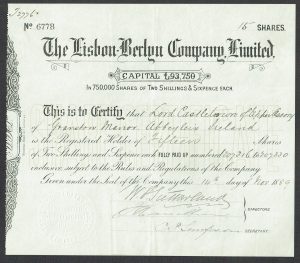 Nº 6778
15 SHARES.
The Lisbon-Berlyn Company, Limited.
CAPITAL £93,750
IN 750,000 SHARES OF TWO SHILLINGS & SIXPENCE EACH.
This is to Certify that Lord Castletown of Upper Ossory
of Granston Manor Abbeyleix Ireland
is the Registered Holder of Fifteen Shares
of Two Shillings and Sixpence each FULLY PAID UP numbered 207316 to 207330
inclusive, subject to the Rules and Regulations of the Company
Given under the Seal of the Company this 14th day of Nov 1889
W Sutherland
DIRECTORS
SECRETARY